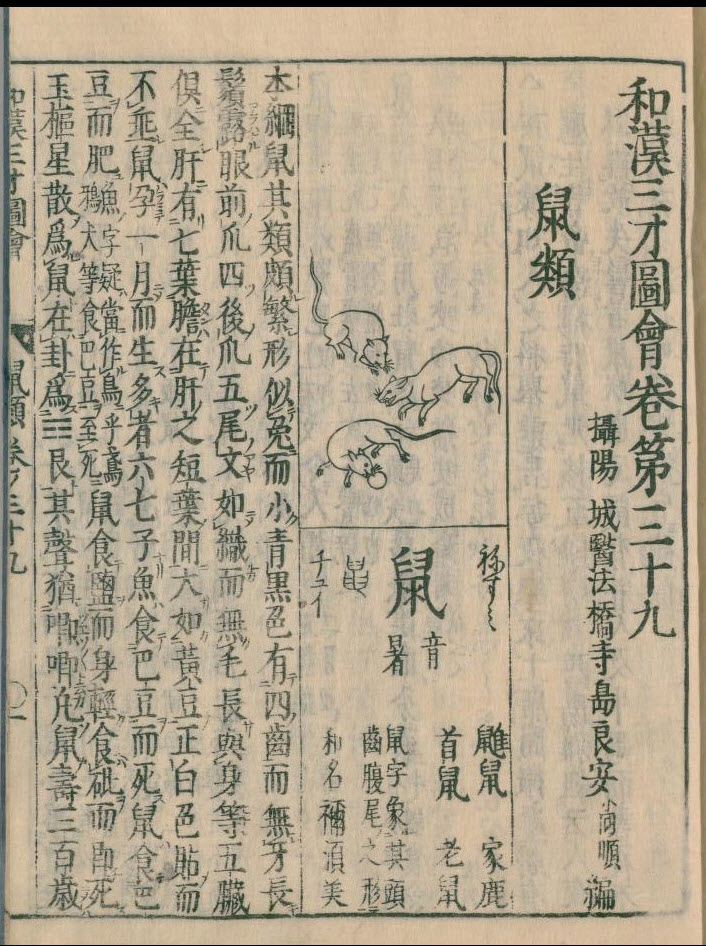 和漢三才圖會卷第三十九
攝陽 城醫法橋寺島良安尚順編
鼠類
ねすミ
鼠
音
暑
䶆鼠 家鹿
首鼠 老鼠
鼠字象其頭
齒腹尾之形
和名禰須美
チユイ
本綱鼠其類頗繁形似兔而小青黑色有四齒而無牙長
鬚露眼前爪四後爪五尾文如織而無毛長與身等五臟
俱全肝有七葉膽在肝之短葉間大如黃豆正白色貼而
不垂鼠孕一月而生多者六七子魚食巴豆而死鼠食巴
豆而肥魚字疑當作鳥乎鳶
鴉犬等食巴豆至死鼠食鹽而身輕食砒而即死
玉樞星散爲鼠在卦爲☶艮其聲猶喞喞凡鼠壽三百歲
和漢三才圖會 鼠類 卷ノ三十九 〇一